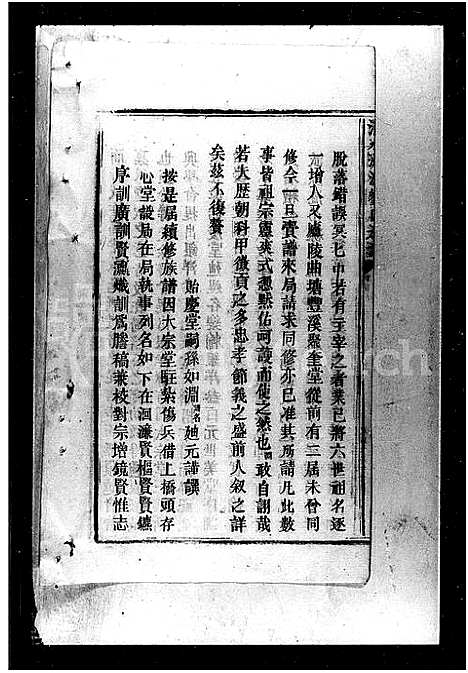 脫落錯誤冥七中若有主宰之者業已將六世祖名逐
一增入又廬陵曲塘豐溪羅奎堂從前有二屆未曾同
修今一旦賫譜來局請求同修亦已准其所請凡此數
事皆祖宗靈爽式憑默佑呵護而使之然也敢自詡哉
若夫歷朝科甲徵貢之多忠孝節義之盛前人叙之詳
矣茲不復贅 貽慶堂嗣孫如淵 廸元謹譔
按是屆續修族譜因大宗堂駐紮傷兵借上橋頭存
心堂設局在局執事列名如下在洄濂賢樞賢賢纘
序訓廣訓賢瀛熾訓為謄稿兼校對宗增鏡賢惟志